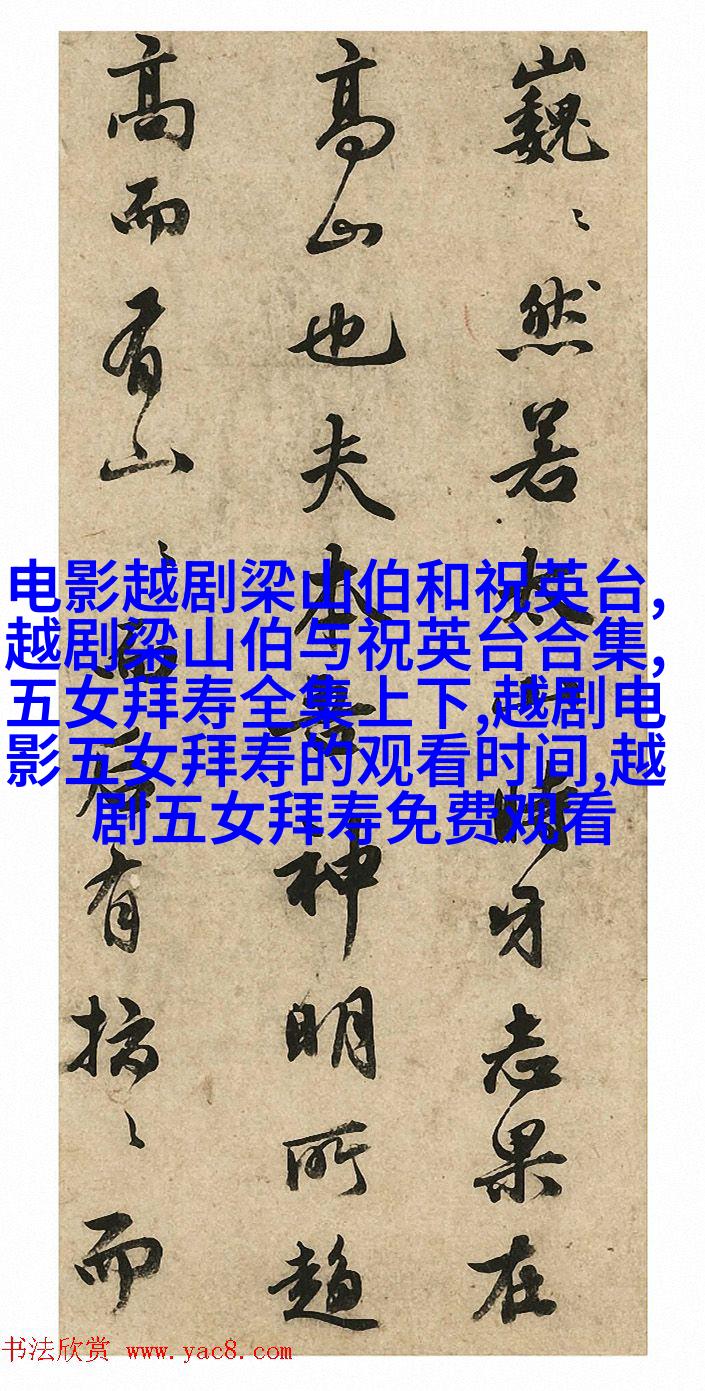 巍〻然若太時牙志果在
高山也夫本神明所趨
高而有山〻有〻而
电影越剧梁山伯和祝英台,
越剧梁山伯与祝英台合集,
五女拜寿全集上下,越剧电
影五女拜寿的观看时间,越
剧五女拜寿免费观看
书法欣赏 www.yac8.com